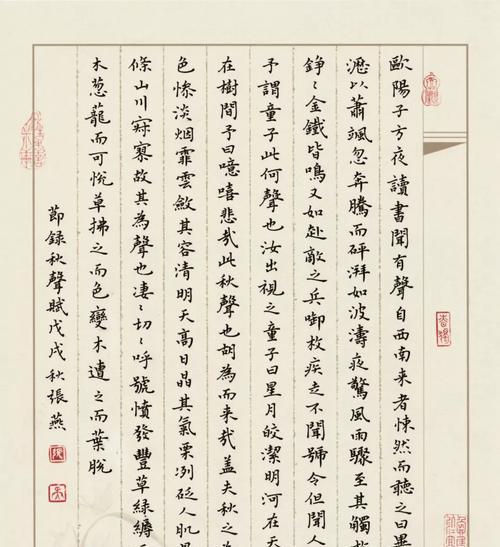 歐陽子方夜讀書聞有聲自西南来者悚然而聽之曰異
瀝以蕭颯忽奔騰而砰湃如波濤夜驚風雨驟至其觸
錚々金鐵皆鳴又如赴敵之兵啣枚疾走不聞號令但聞人
予謂童子此何聲也汝出視之童子曰星月皎潔明河在天
在樹間予曰噫嘻悲哉此秋聲也胡為而来哉盖夫秋之
色慘淡烟霏雲斂其容清明天高日晶其氣栗冽砭人肌
條山川寂寥故其為聲也凄々切々呼號憤發豐草綠縟
木葱蘢而可悅草拂之而色變木遭之而葉脫
節錄秋聲賦戊戌秋張燕